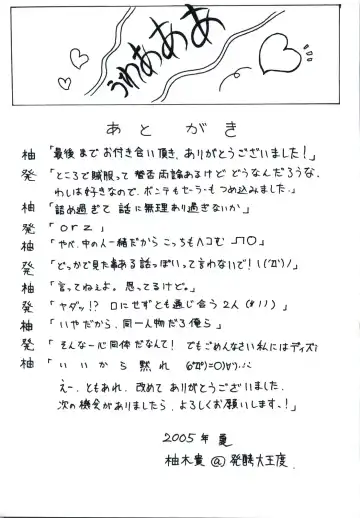 うわあああ
あとがき
柚「最後までお付き合い頂き、ありがとうございました!」
発「ところで賊服って賛否両論あるけどどうなんだろうな、
わしは好きなので、ボンテもセーラーもつめ込みました。」
柚「詰め過ぎて話に無理あり過ぎないか」
発「orz」
柚「やべ、中の人一緒だからこっちもヘコむ _| ̄|○」
発「どっかで見た事ある話っぽいって言わないで!(´Д`)ノ」
柚「言ってねぇよ。思ってるけど。」
発「ヤダッ!?口にせずとも通じ合う2人(〃ノノ)」
柚「いやだから、同一人物だろ俺ら」
発「そんな一心同体だなんて!でもごめんなさい私にはディズ」
柚「いいから黙れ
えー、ともあれ、改めてありがとうございました。
次の機会がありましたら、よろしくお願いします、!」
2005年 夏
柚木貴@発酵大王度